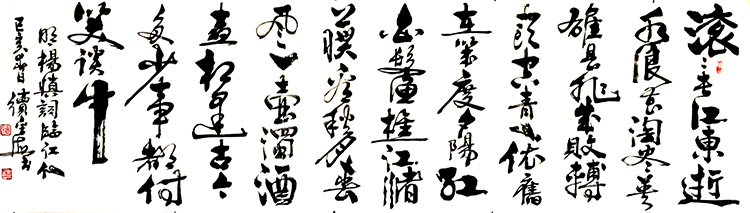 滚〻長江東逝
水浪花淘尽英
雄是非成敗轉
頭空青山依舊
在幾度夕陽紅
白髮漁樵江渚
上慣看秋月春
风一壺濁酒
喜相逢古今
多少事都付
笑談中
明楊慎詞臨江仙
己亥夏日